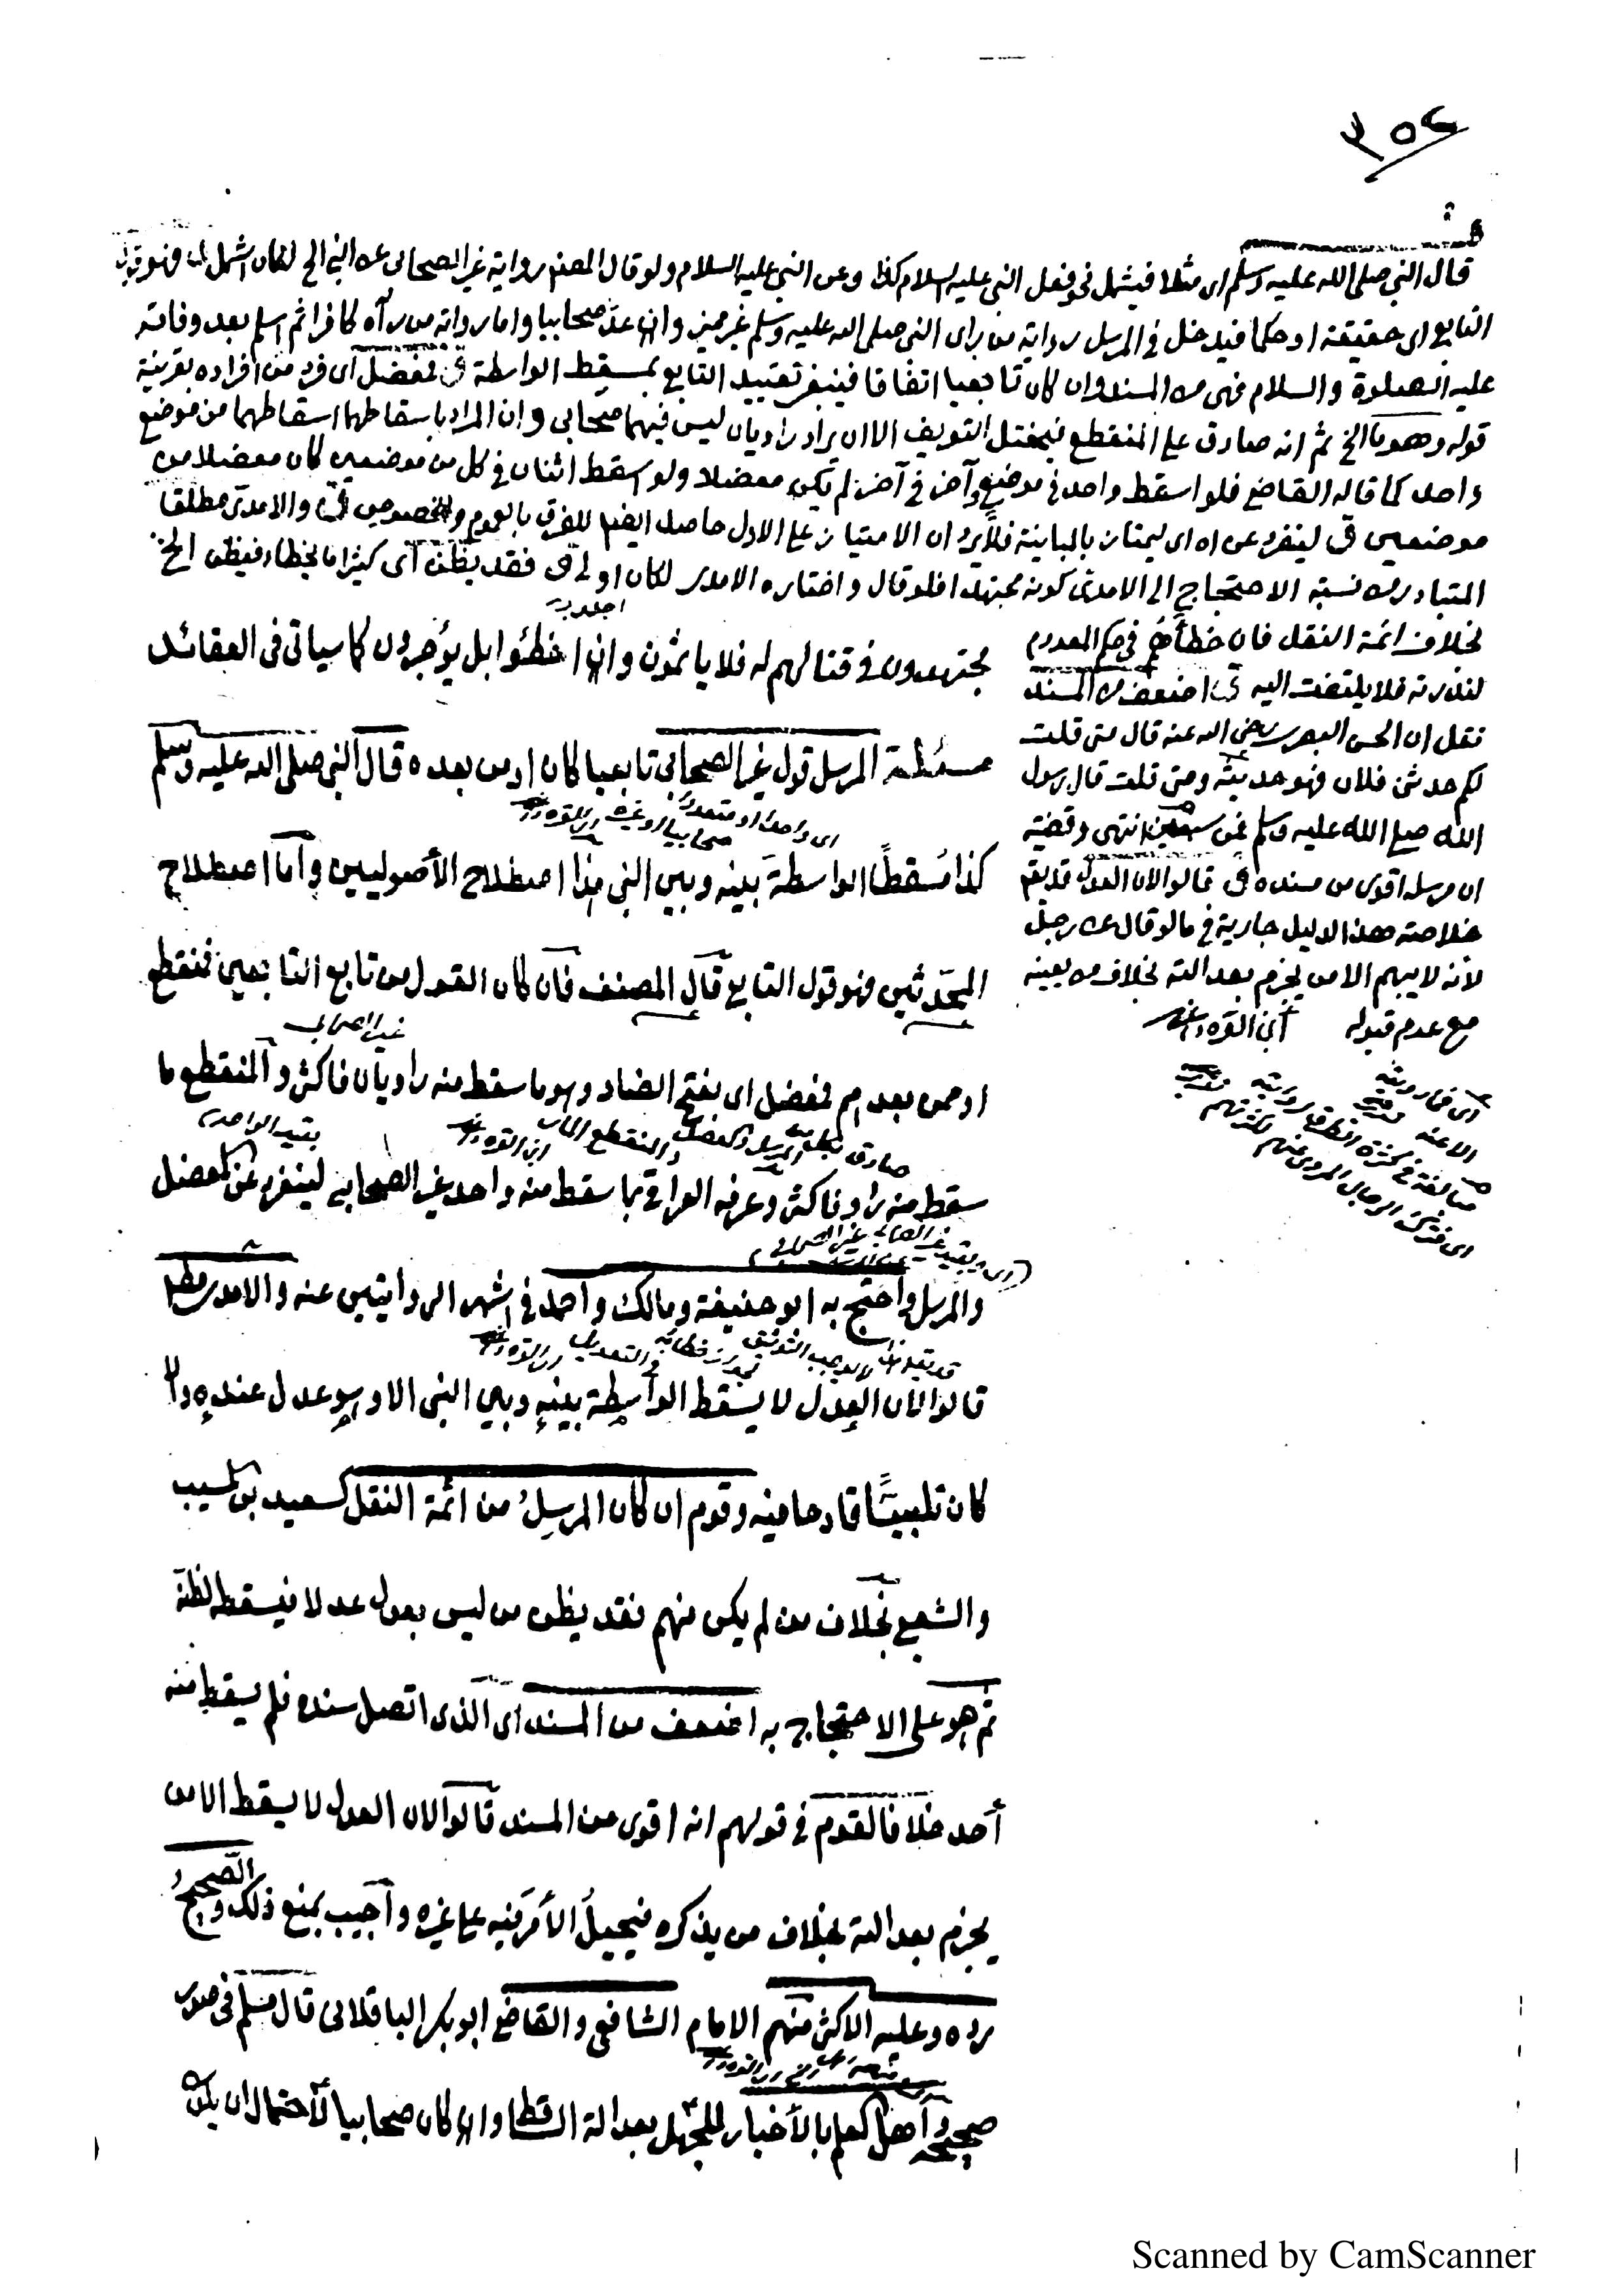 ٣٥٤
قال النبي صلى الله عليه وسلم اى مثلا فيشمل نحو فعل النبى عليه السلام كذا وعن النبى عليه السلام ولو قال المصنف رواية غير الصحابى عن النبى الخ لكان اشمل فهو قول
التابع اى حقيقة او حكما فيدخل فى المرسل رواية من راى النبى صلى الله عليه وسلم غير مميز وان عد صحابيا واما رواية من رآه كافرا ثم اسلم بعد وفاته
عليه الصلوة والسلام فهى من المسند وان كان تابعيا اتفاقا فينبغى تقييد التابع بمسقط الواسطة ق فمعضل اى فرد من افراده بقرينة
قوله وهو ما الخ ثم انه صادق على المنقطع فيختل التعريف الا ان يراد راويان ليس فيهما صحابى وان المراد باسقاطهما اسقاطهما من موضع
واحد كما قاله القاضى فلو اسقط واحد فى موضع وآخر فى آخر لم يكن معضلا ولو اسقط اثنان فى كل من موضعين كان معضلا من
موضعين ق لينفرد عن اه اى ليمتاز بالمباينة فلا يرد ان الامتياز على الاول حاصل ايضا للفرق بالعموم والخصوص ق والامدى مطلقا
المتبادر من نسبة الاحتجاج الى الامدى كونه مجتهدا فلو قال واختاره الامدى لكان اولى ق فقد يظن اى كثيرا ما يخطأ فيظن الخ
بخلاف ائمة النقل فان خطأهم فى حكم المعدوم
لندرته فلا يلتفت اليه ق اضعف من المسند
نقل ان الحسن البصرى رضى الله عنه قال متى قلت
لكم حدثنى فلان فهو حديثه ومتى قلت قال رسول
الله صلى الله عليه وسلم فمن سبعين انتهى وقضيته
ان مرسله اقوى من مسنده ق قالوا لان العدل قد يقع
خلاصته هذا الدليل جارية فى ما لو قال عن رجل
لأنه لا يبهم الا من يجزم بعدالته بخلاف من يعينه
مع عدم قبوله ابن القره داغى
مجتهدون فى قتالهم له فلا ياثمون وان اخطئوا بل يؤجرون كما سياتى فى العقائد
مسئلة المرسل قول غير الصحابى تابعيا كان او من بعده قال النبى صلى الله عليه وسلم
كذا مسقطا الواسطة بينه وبين النبى هذا اصطلاح الأصوليين وأما اصطلاح
المحدثين فهو قول التابع قال المصنف فان كان القول من تابع التابعين فمنقطع
غير الصحابى
او ممن بعدهم فمعضل اى بفتح الضاد وهو ما سقط منه راويان فاكثر والمنقطع ما
بقيد الواحد
سقط منه راو فاكثر وعرفه العراقى بما سقط منه واحد غير الصحابى لينفرد عن المعضل
والمرسل واحتج به ابو حنيفة ومالك واحمد فى اشهر الروايتين عنه والامدى مطلقا
قالوا لان العدل لا يسقط الواسطة بينه وبين النبى الا وهو عدل عنده والا
كان تلبيسا قادحا فيه وقوم ان كان المرسل من ائمة النقل كسعيد بن المسيب
والشعبى بخلاف من لم يكن منهم فقد يظن من ليس بعدل عدلا فيسقطه لظنه
ثم هو على الاحتجاج به اضعف من المسند اى الذى اتصل سنده فلم يسقط منه
أحد خلافا لقوم فى قولهم انه اقوى من المسند قالوا لان العدل لا يسقط الا من
يجزم بعدالته بخلاف من يذكره فيحيل الأمر فيه على غيره وأجيب بمنع ذلك والصحيح
رده وعليه الاكثر منهم الامام الشافعى والقاضى ابو بكر الباقلانى قال مسلم فى صدر
صحيحه وأهل العلم بالأخبار للجهل بعدالة الساقط وان كان صحابيا لأحتمال ان يكون
Scanned by CamScanner